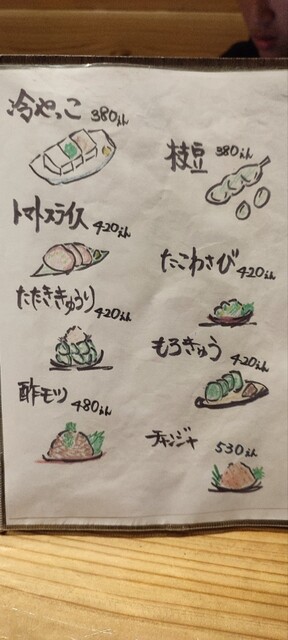 冷やっこ 380えん
枝豆 380えん
トマトスライス 420えん
たこわさび 420えん
たたききゅうり 420えん
もろきゅう 420えん
酢モツ 480えん
チャンジャ 530えん